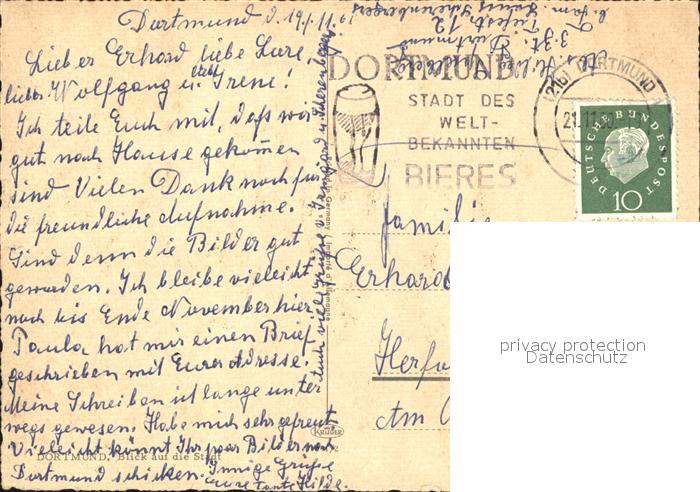 Dortmund d. 19/11.61
Lieber Erhard liebe Lure,
lieber Wolfgang u. liebe Irene!
Ich teile Euch mit, daß wir
gut nach Hause gekommen
sind Vielen Dank noch für
die freundliche Aufnahme.
Sind denn die Bilder gut
geworden. Ich bleibe vieleicht
noch bis Ende November hier.
Paula hat mir einen Brief
geschrieben mit Eurer Adresse.
Meine Schreiben ist lange unter
wegs gewesen. Habe mich sehr gefreut
Vieleicht könnt Ihr paar Bilder nach
Dortmund schicken. Innige Grüße
Eure Tante Hilde.
DORTMUND, Blick auf die Stadt
Euch viele Grüße v.
KRÜGER
DORTMUND
STADT DES
WELT-
BEKANNTEN
BIERES
(21b) DORTMUND
21.11.
DEUTSCHE BUNDESPOST
10
Dortmund
3. Zt.
Familie
Erhard
Herfo
Am
privacy protection
Datenschutz